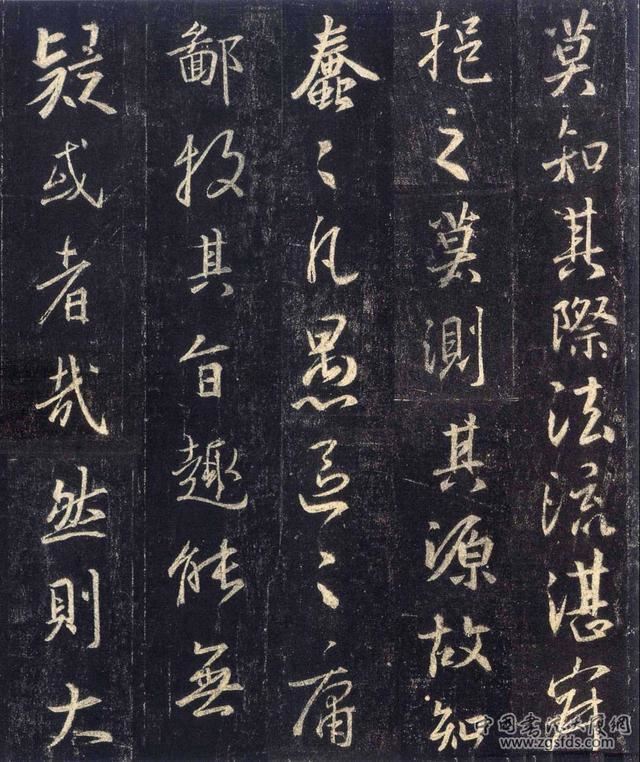 莫知其際法流湛寂
挹之莫測其源故知
蠢〻凡愚區〻庸
鄙投其旨趣能無
疑或者哉然則大
中国书法大侠网
www.zgsfds.com